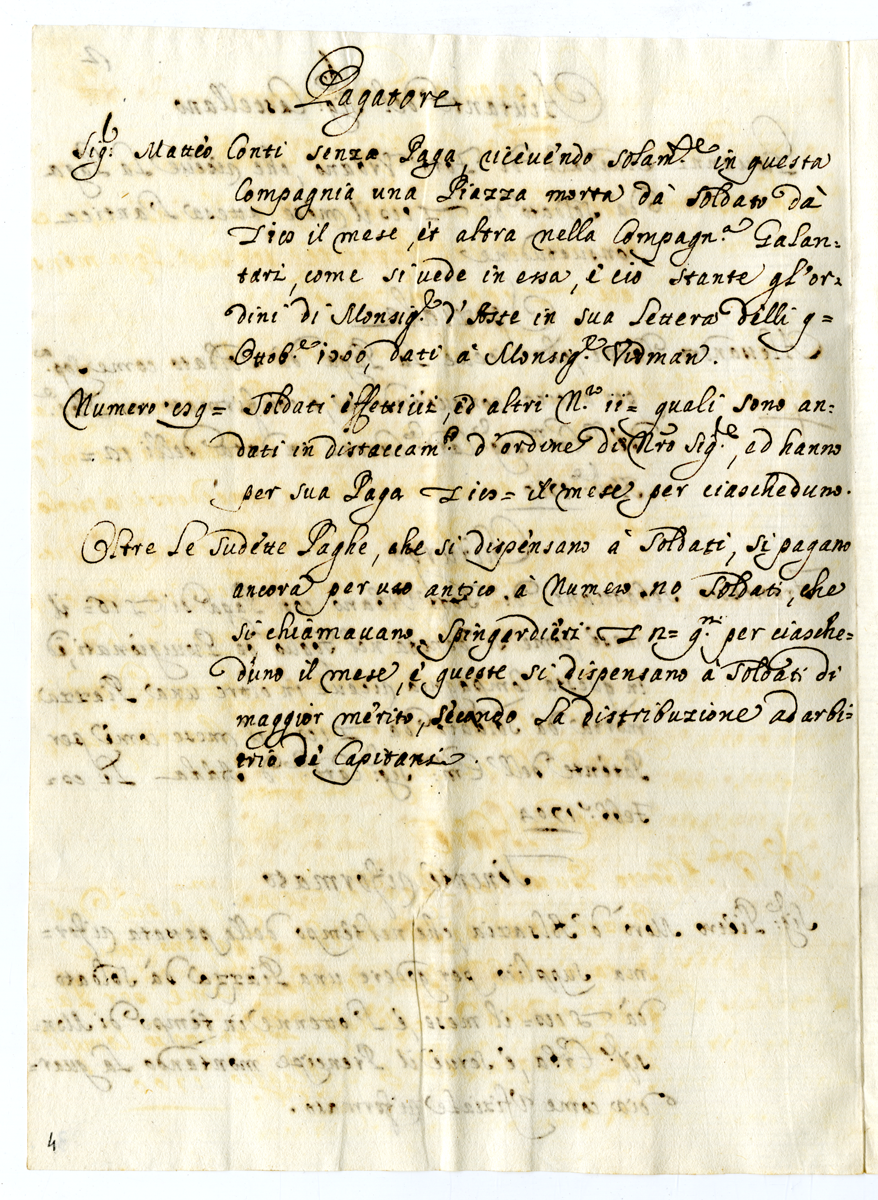 Pagatore
Sig.r Matteo Conti senza Paga, ricevendo solam.te in questa
Compagnia una Piazza morta dà Soldato dà
il mese, et altra nella Compagn.a Galan-
tari, come si vede in essa, è ciò stante gl'or-
dini di Monsig.r d'Aste in sua lettera delli 9=
Ottob.e dati à Monsig.r Vidman.
Numero Soldati effettivi, ed altri N.ro ii= quali sono an-
dati in distaccam.to d'ordine di Nr̃o Sig.re, ed hanno
per sua Paga il mese per ciascheduno.
Oltre le sudette Paghe, che si dispensano à Soldati, si pagano
ancora per uso antico à Numero Soldati, che
si chiamavano Spingardieri per ciasche-
duno il mese, è queste si dispensano à Soldati di
maggior merito, secondo la distribuzione ad arbi-
trio dè Capitani.
4